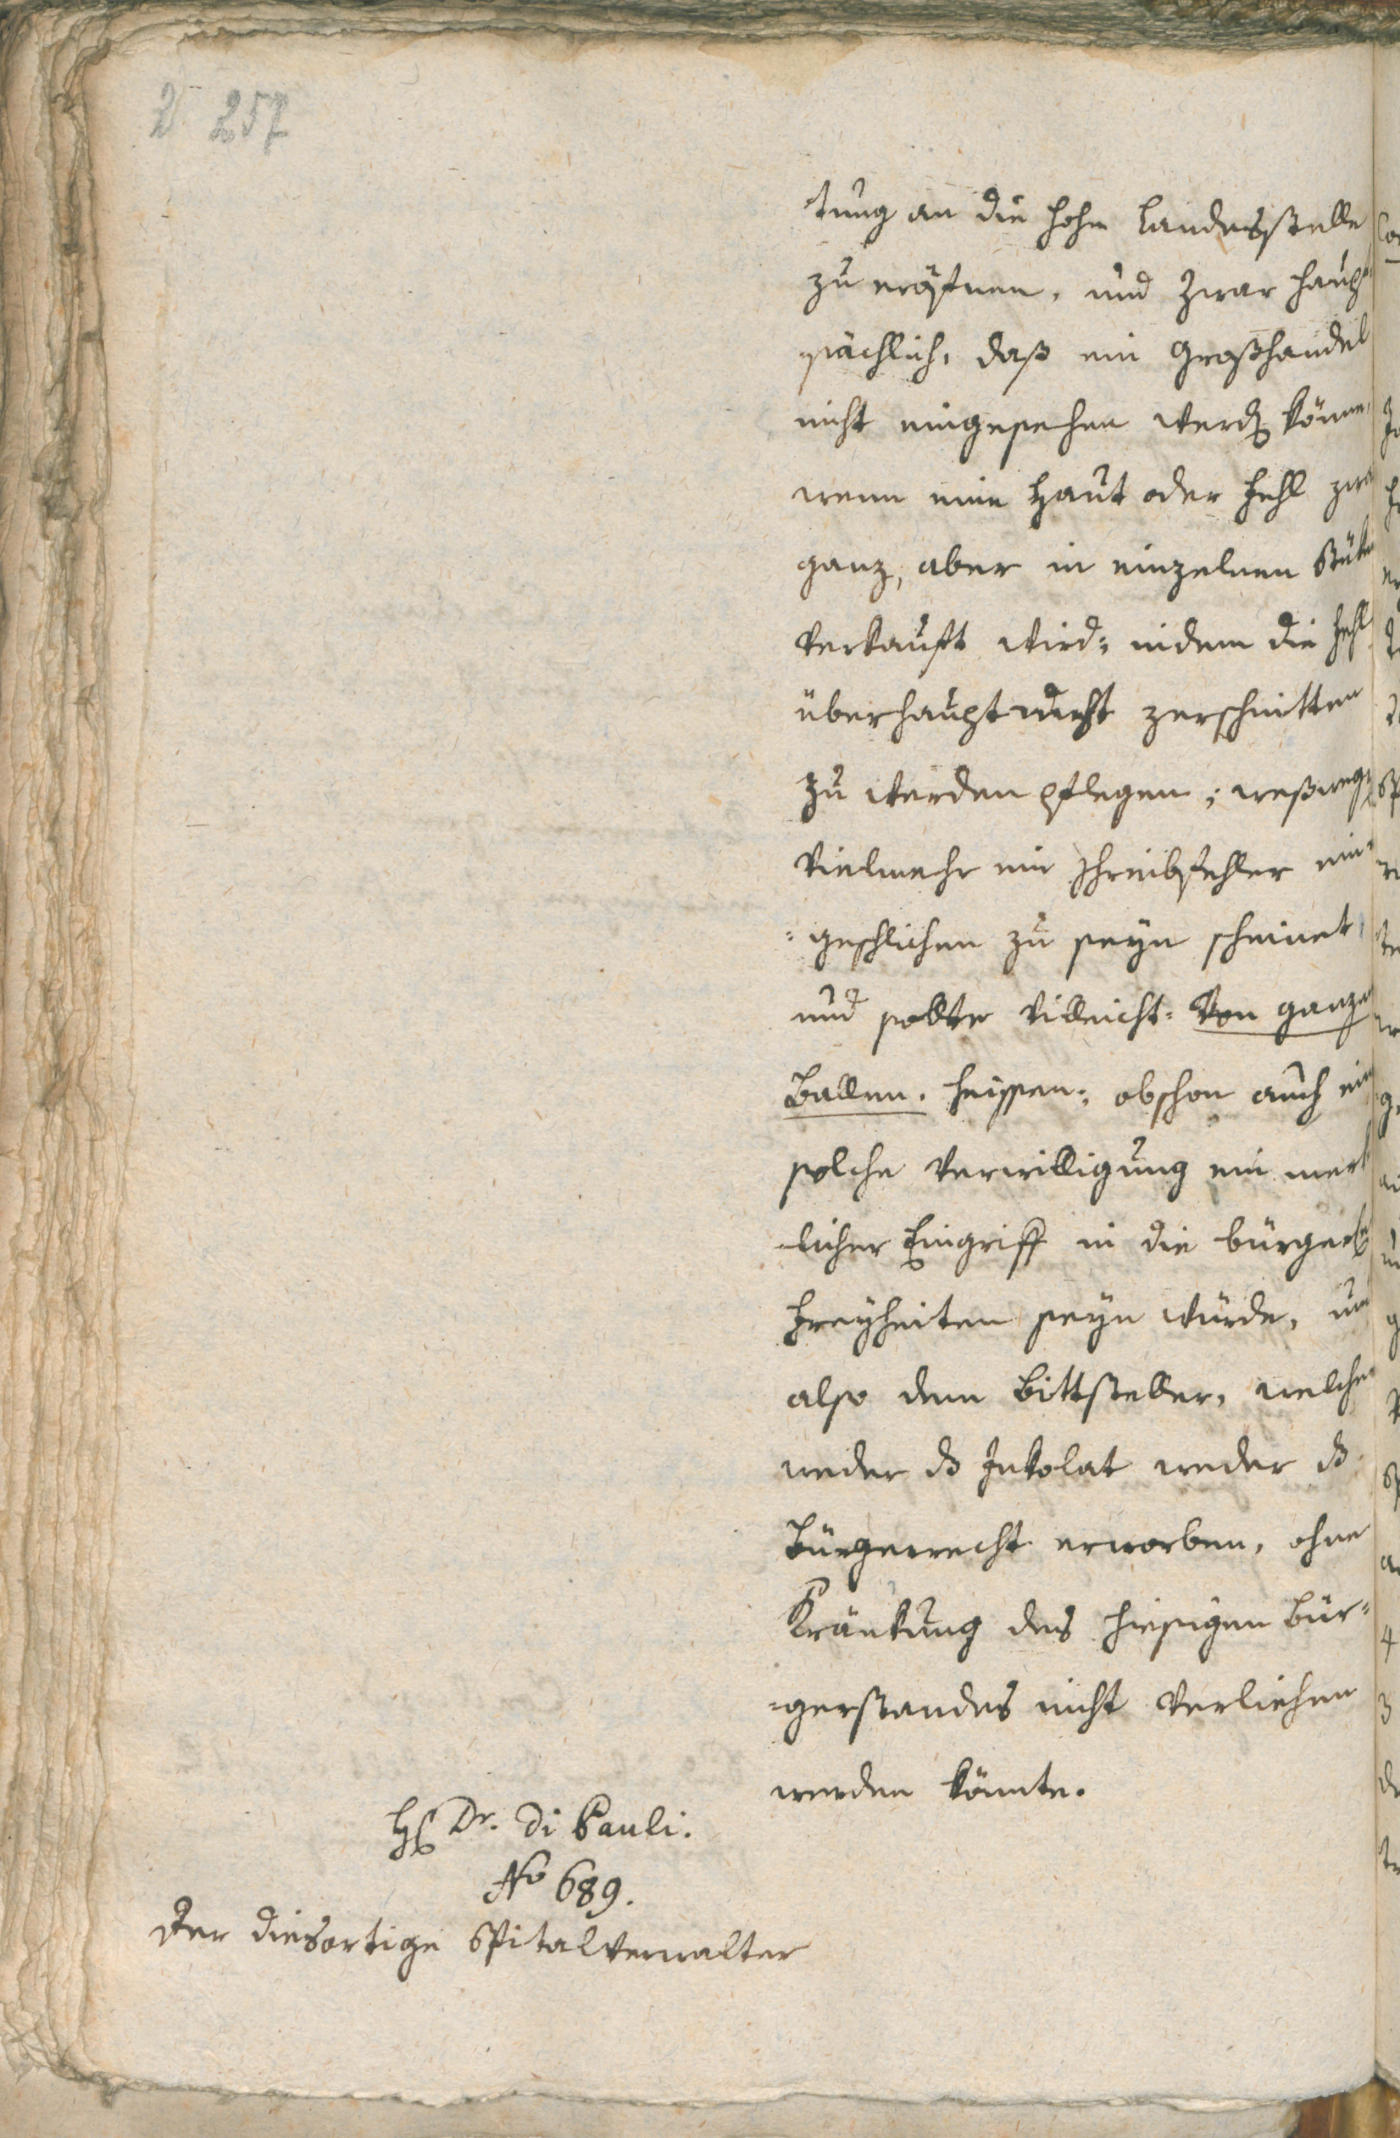 257
tung an die hohe Landesstelle
zu eröfnen, und zwar haupt
sächlich, daß ein Großhandel
nicht eingesehen werden könne,
wenn eine Haut oder Fehl zwar
ganz, aber in einzelnen Stüken
verkauft wird; indem die Fehl
überhaupt nicht zerschnitten
zu werden pflegen; weßwegen
vielmehr ein Schreibfehler ein=
=geschlichen zu seyn scheinet,
und sollte villeicht: von ganzen
Ballen. heissen; obschon auch ein
solche Verwilligung ein merk
=licher Eingriff in die bürgerl
Freyheiten seyn würde, und
also dem Bittsteller, welcher
weder ds Inkolat weder ds
Bürgerrecht erworben, ohne
Kränkung des hiesigen Bür=
=gerstandes nicht verliehen
werden könnte.
H Dr. Di Pauli.
No 689.
Der diesortige Spitalverwalter